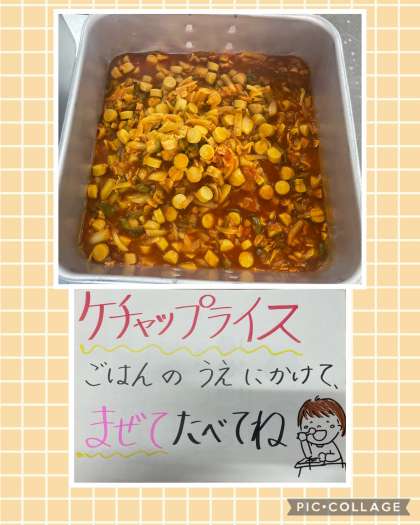 ケチャップライス
ごはんの うえ にかけて、
まぜて たべてね
PIC•COLLAGE